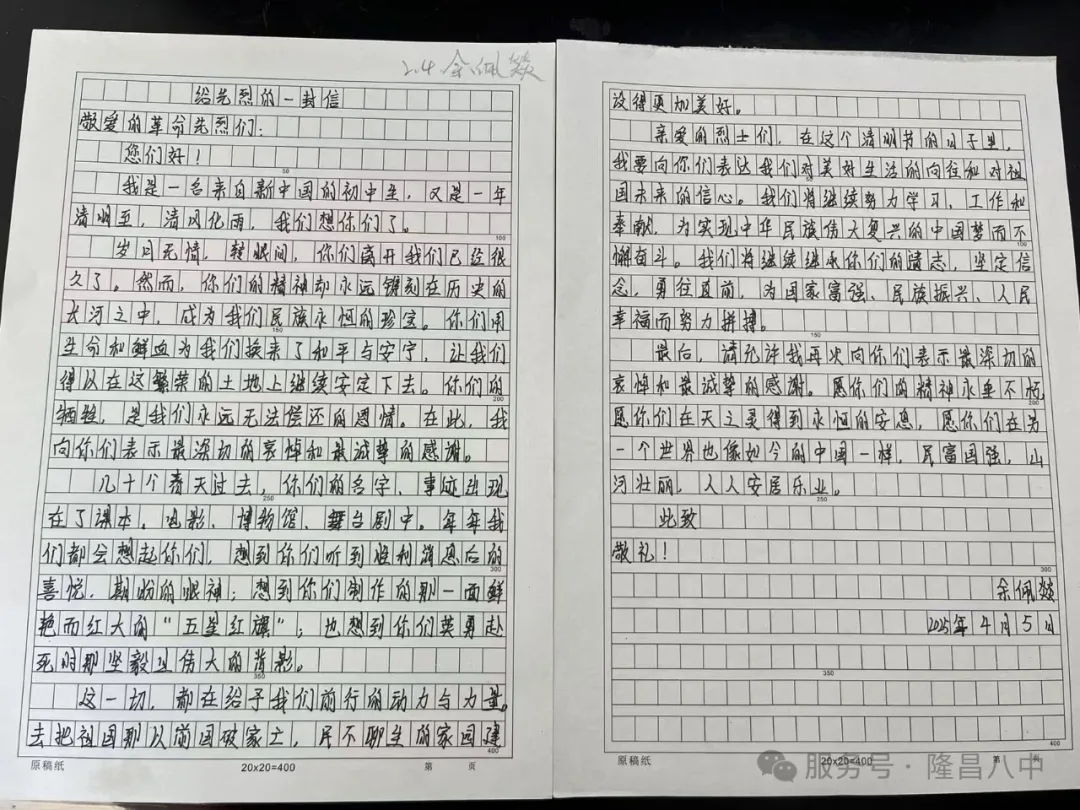 2.4 余佩燚
给先烈的一封信
敬爱的革命先烈们：
您们好！
我是一名来自新中国的初中生，又是一年
清明至，清风化雨，我们想你们了。
岁月无情，转眼间，你们离开我们已经很
久了。然而，你们的精神却永远镌刻在历史的
长河之中，成为我们民族永恒的珍宝。你们用
生命和鲜血为我们换来了和平与安宁，让我们
得以在这繁荣的土地上继续安定下去。你们的
牺牲，是我们永远无法偿还的恩情。在此，我
向你们表示最深切的哀悼和最诚挚的感谢。
几十个春天过去，你们的名字、事迹出现
在了课本、电影、博物馆、舞台剧中。每每我
们都会想起你们，想到你们听到胜利消息后的
喜悦，期盼的眼神；想到你们制作的那一面鲜
艳而红大的“五星红旗”；也想到你们英勇赴
死时那坚毅且伟大的背影。
这一切，都在给予我们前行的动力与力量。
去把祖国那以前国破家亡，民不聊生的家园建
50
100
150
200
250
300
350
400
原稿纸
20x20=400
第 页
设得更加美好。
亲爱的烈士们，在这个清明节的日子里，
我要向你们表达我们对美好生活的向往和对祖
国未来的信心。我们将继续努力学习、工作和
奉献，为实现中华民族伟大复兴的中国梦而不
懈奋斗。我们将继续继承你们的遗志，坚定信
念，勇往直前，为国家富强、民族振兴、人民
幸福而努力拼搏。
最后，请允许我再次向你们表示最深切的
哀悼和最诚挚的感谢。愿你们的精神永垂不朽，
愿你们在天之灵得到永恒的安息，愿你们在另
一个世界也像如今的中国一样，民富国强，山
河壮丽，人人安居乐业。
此致
敬礼！
余佩燚
2025年4月5日
100
150
200
250
300
350
400
原稿纸
20x20=400
第 页
服务号·隆昌八中